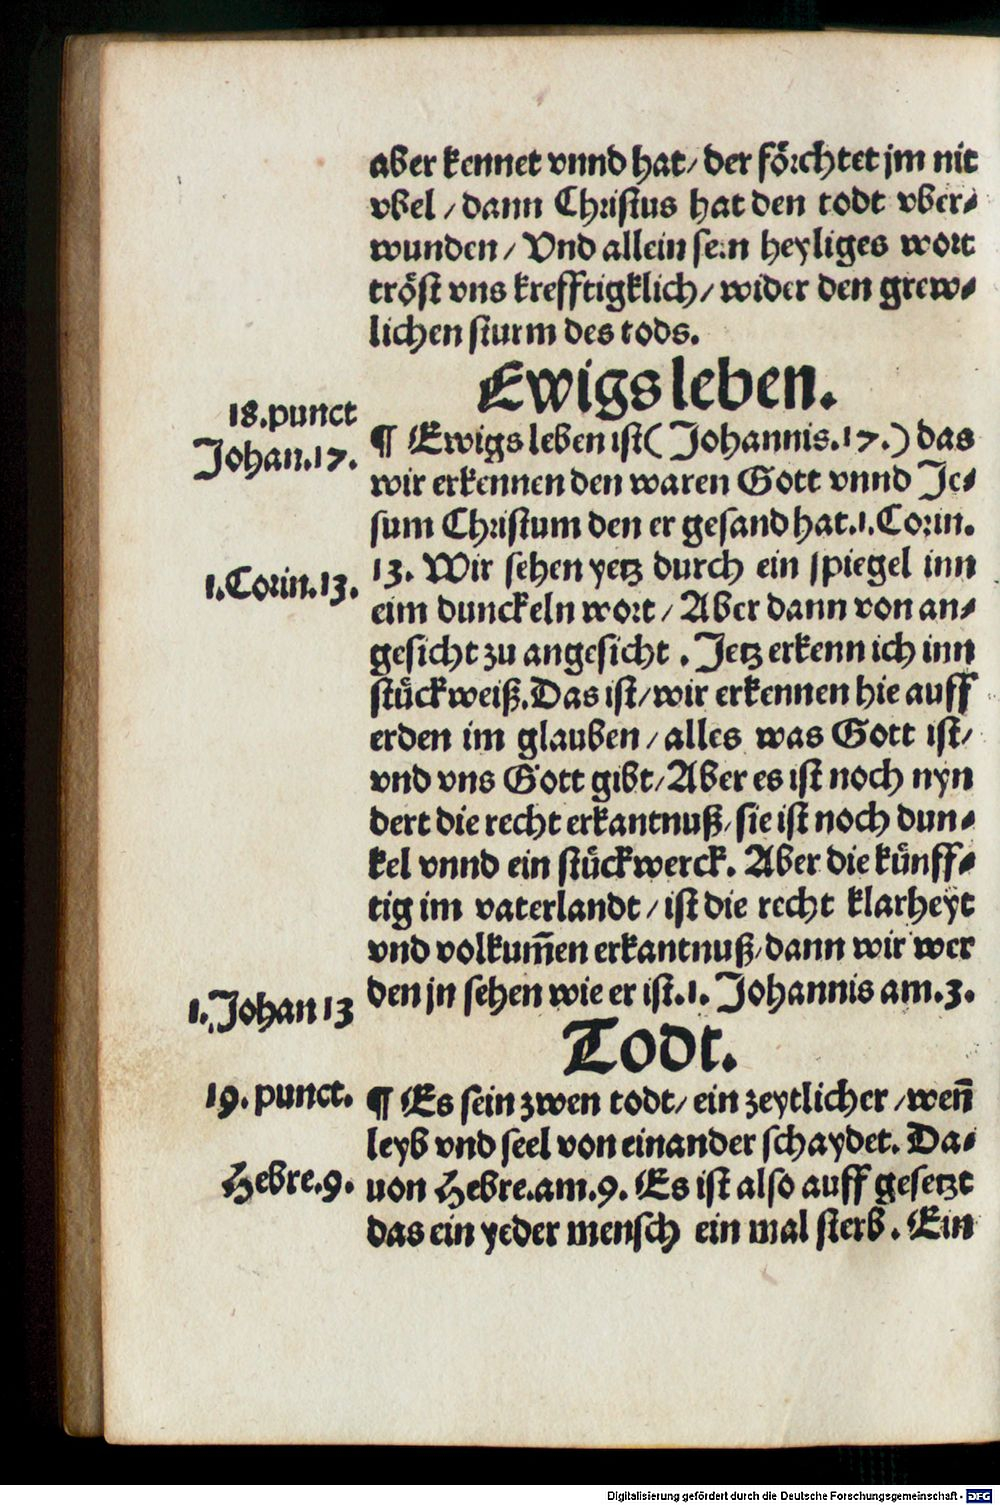 aber kennet vnnd hat/ der förchtet jm nit
vbel / dann Christus hat den todt vber⸗
wunden / Vnd allein sein heyliges wort
tröst vns krefftigklich / wider den grew⸗
lichen sturm des tods.
Ewigs leben.
18.punct
Johan.17.
¶ Ewigs leben ist( Johannis.17.) das
wir erkennen den waren Gott vnnd Je⸗
sum Christum den er gesand hat.1.Corin.
1.Corin.13.
13. Wir sehen yetz durch ein spiegel inn
eim dunckeln wort / Aber dann von an⸗
gesicht zu angesicht . Jetz erkenn ich inn
stuͤckweiß.Das ist/ wir erkennen hie auff
erden im glauben / alles was Gott ist/
vnd vns Gott gibt/ Aber es ist noch nyn
dert die recht erkantnuß/ sie ist noch dun⸗
kel vnnd ein stuͤckwerck. Aber die kuͤnff⸗
tig im vaterlandt / ist die recht klarheyt
vnd volkum̃en erkantnuß/ dann wir wer
1.Johan 13
den jn sehen wie er ist.1. Johannis am.3.
Todt.
19. punct.
¶ Es sein zwen todt/ ein zeytlicher / weñ
leyb vnd seel von einander schaydet. Da⸗
Hebre.9.
uon Hebre.am.9. Es ist also auff gesetzt
das ein yeder mensch ein mal sterb . Ein
Digitalisierung gefördert durch die Deutsche Forschungsgemeinschaft - DFG